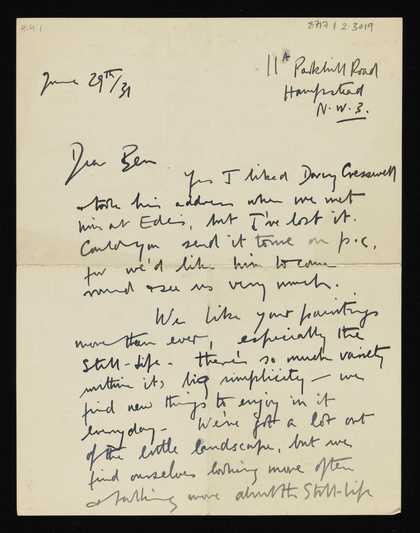 8717.1.2.3019
June 29th/31
11A Parkhill Road
Hampstead
N.W.3.
Dear Ben
Yes I liked Darcy Cresswell
& took his address when we met
him at Ede's, but I've lost it.
Could you send it to me on p.c.
for we'd like him to come
round & see us very much.
We like your paintings
more than ever, especially the
Still-Life. There's so much variety
within its big simplicity – we
find new things to enjoy in it
everyday – We've got a lot out
of the little landscape, but we
find ourselves looking more often
& talking more about the Still-Life